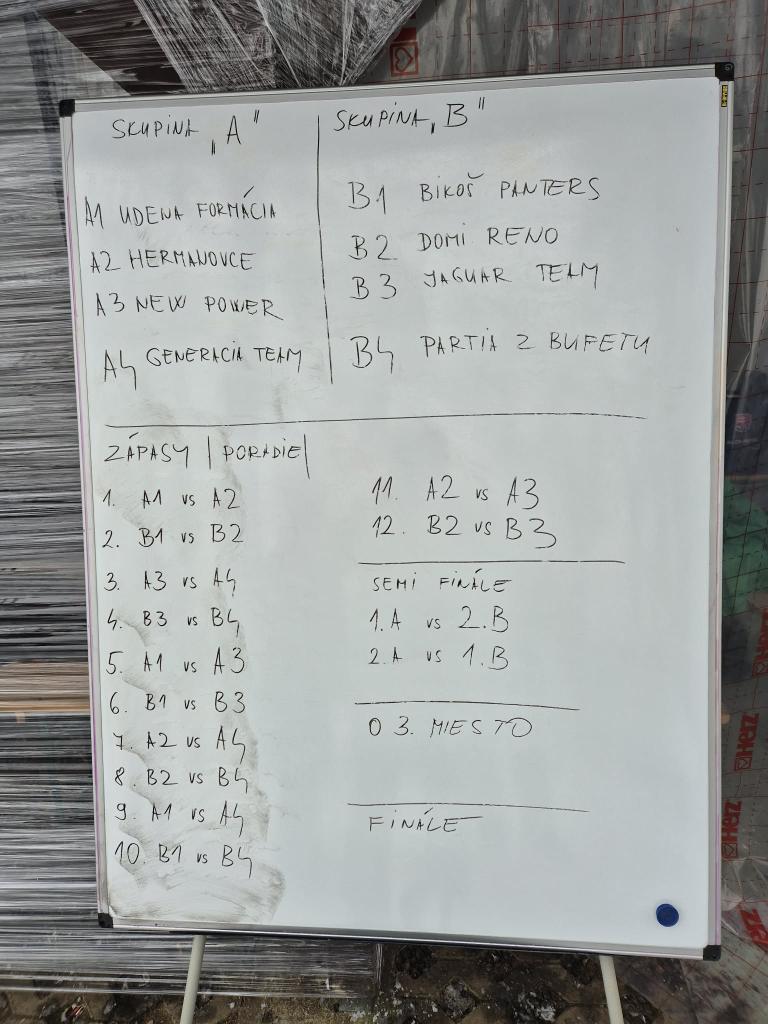 SKUPINA „A"
A1 UDENA FORMÁCIA
A2 HERMANOVCE
A3 NEW POWER
A4 GENERACIA TEAM
SKUPINA „B"
B1 BIKOŠ PANTERS
B2 DOMI RENO
B3 JAGUAR TEAM
B4 PARTIA Z BUFETU
ZÁPASY | PORADIE |
1. A1 vs A2
2. B1 vs B2
3. A3 vs A4
4. B3 vs B4
5. A1 vs A3
6. B1 vs B3
7. A2 vs A4
8. B2 vs B4
9. A1 vs A4
10. B1 vs B4
11. A2 vs A3
12. B2 vs B3
SEMI FINÁLE
1.A vs 2.B
2.A vs 1.B
O 3. MIESTO
FINÁLE
Herz
Herz
Herz